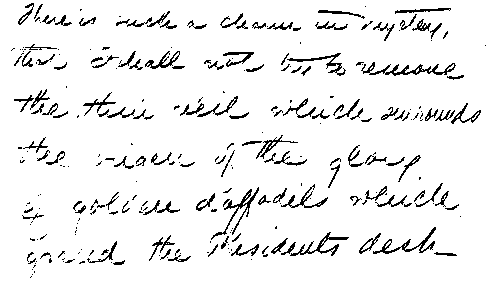 There is such a charm in mystery,
that I shall not try to remove
the thin veil which surrounds
the vision of the glory
of golden daffodils which
graced the Presidents desk